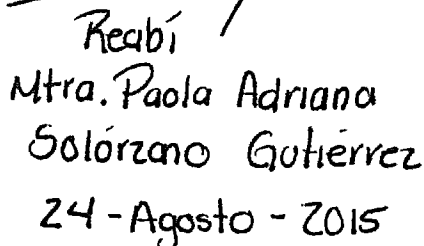 Recibí
Mtra. Paola Adriana
Solórzano Gutiérrez
24-Agosto-2015